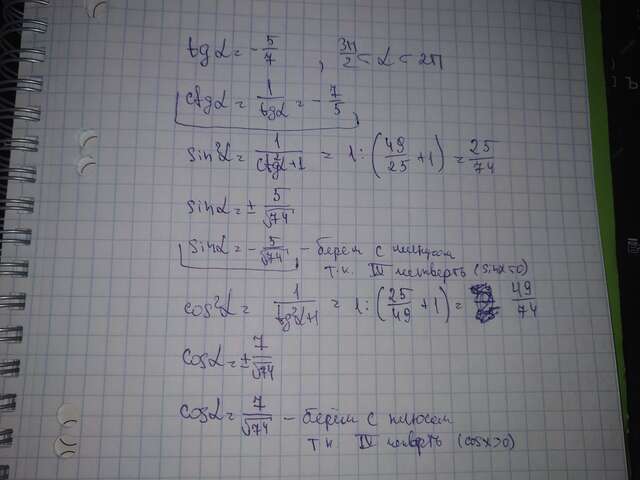 tgα = -5/7 , 3π/2 < α < 2π
ctgα = 1/tgα = -7/5
sin²α = 1/(ctg²α+1) = 1:(49/25 +1) = 25/74
sinα = ± 5/√74
sinα = -5/√74 - берём с минусом
т.к. IV четверть (sinx<0)
cos²α = 1/(tg²α+1) = 1:(25/49 +1) = 49/74
cosα = ± 7/√74
cosα = 7/√74 - берём с плюсом
т.к. IV четверть (cosx>0)